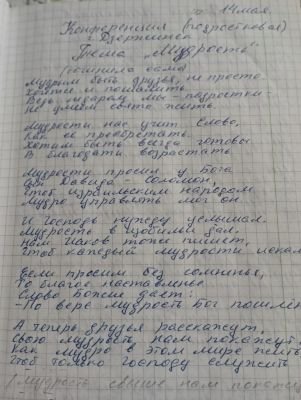 14 мая.
Конференция (подростковая)
г. Дзержинск
Тема „Мудрость"
(сочинила сама)
Мудрым быть, друзья, не просто
Хотим и пошалить
Ведь мы – подростки
Не умеем свято жить.
Мудрости нас учит Слово,
Как её приобретать.
Хотим быть всегда готовы
В благодати возрастать.
Мудрости просил у Бога
Давида Соломон,
Чтоб израильским народом
Мудро управлять мог он.
И Господь нужду услышал.
Мудрость в изобилии дал.
Нам Иаков тоже пишет,
Чтоб каждый мудрости искал
Если просим без сомненья,
То благое наставленье
Слово Божье дает:
– По вере мудрость Бог пошлёт
А теперь друзья расскажут,
Свою мудрость нам покажут
Как мудро в этом мире жить
Чтоб только Господу служить
(Мудрость свыше нам